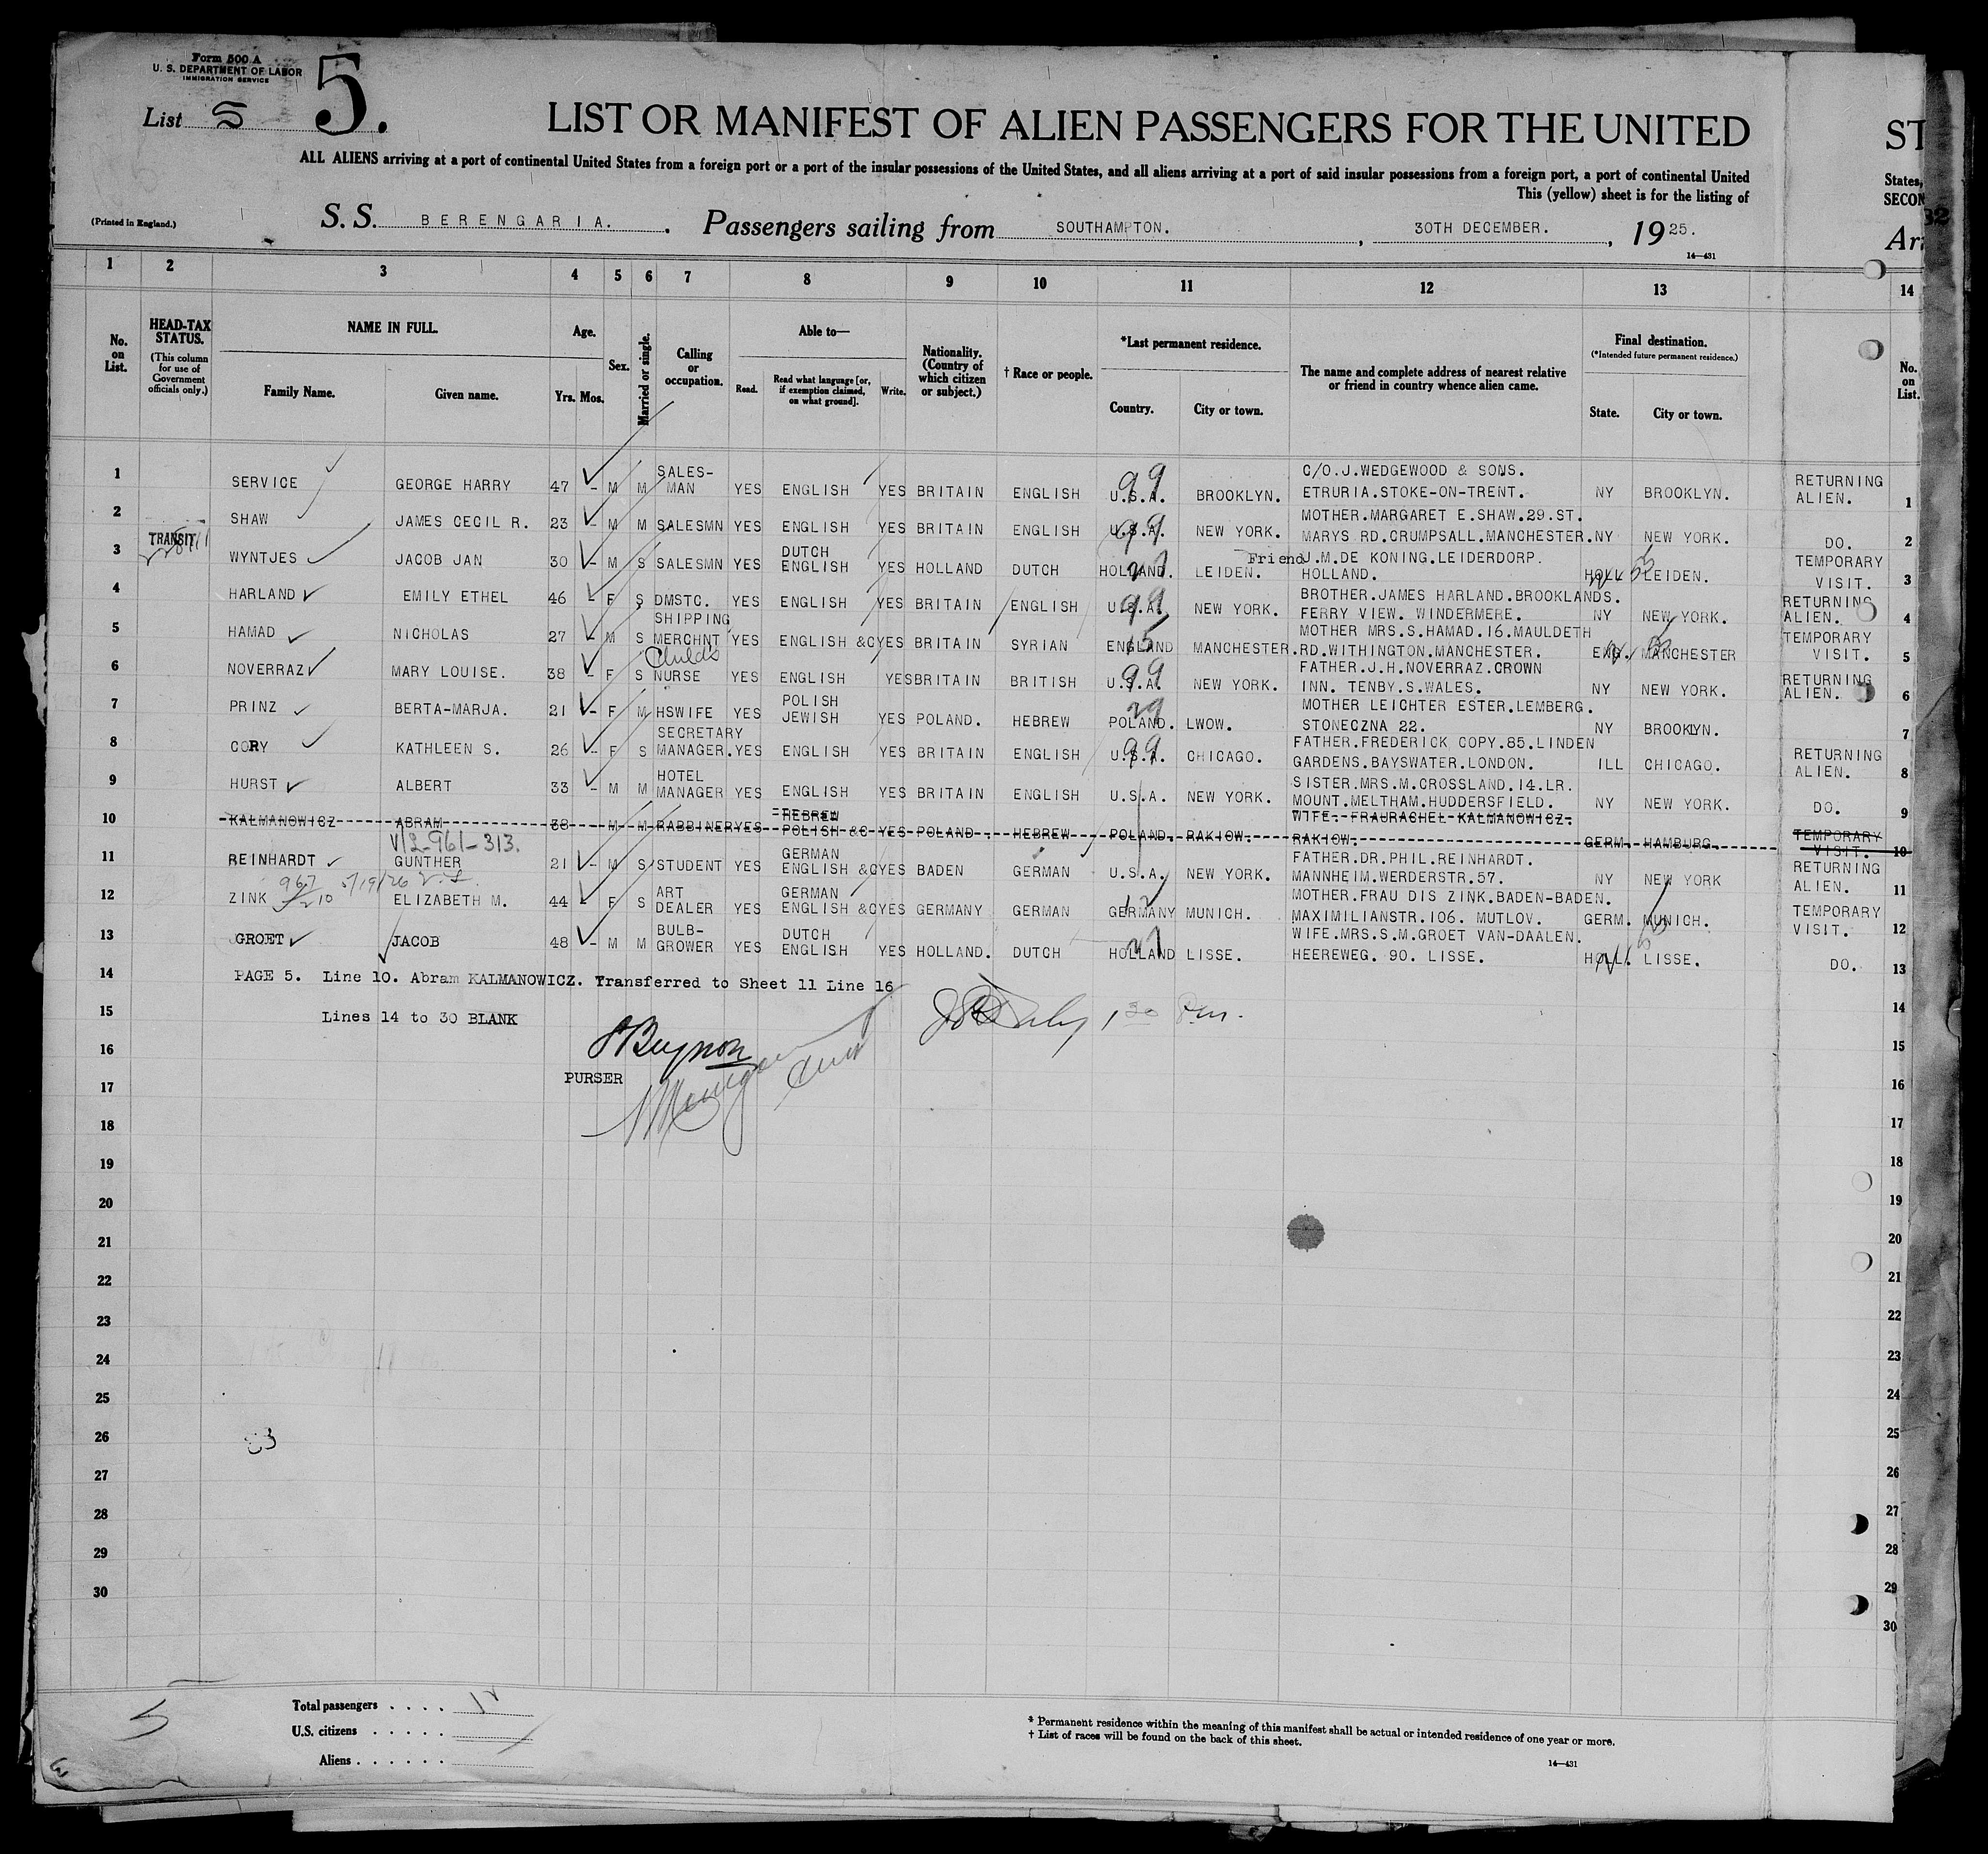 Form 500 A
U. S. DEPARTMENT OF LABOR
IMMIGRATION SERVICE
List 5 5.
LIST OR MANIFEST OF ALIEN PASSENGERS FOR THE UNITED ST
ALL ALIENS arriving at a port of continental United States from a foreign port or a port of the insular possessions of the United States, and all aliens arriving at a port of said insular possessions from a foreign port, a port of continental United States,
This (yellow) sheet is for the listing of SECON
(Printed in England.)
S.S. BERENGARIA. Passengers sailing from SOUTHAMPTON. , 30TH DECEMBER. , 1925. Arr
14—431
1 2 3 4 5 6 7 8 9 10 11 12 13 14
No. on List.
HEAD-TAX STATUS.
(This column for use of Government officials only.)
NAME IN FULL.
Family Name. Given name.
Age.
Yrs. Mos.
Sex.
Married or single.
Calling or occupation.
Able to—
Read. Read what language [or, if exemption claimed, on what ground]. Write.
Nationality. (Country of which citizen or subject.)
† Race or people.
*Last permanent residence.
Country. City or town.
The name and complete address of nearest relative or friend in country whence alien came.
Final destination.
(*Intended future permanent residence.)
State. City or town.
No. on List.
1 SERVICE GEORGE HARRY 47 - M M SALES-MAN YES ENGLISH YES BRITAIN ENGLISH U.S.A. 99 BROOKLYN. C/O.J.WEDGEWOOD & SONS. ETRURIA.STOKE-ON-TRENT. NY BROOKLYN. RETURNING ALIEN. 1
2 SHAW JAMES CECIL R. 23 - M M SALESMN YES ENGLISH YES BRITAIN ENGLISH U.S.A. 99 NEW YORK. MOTHER.MARGARET E.SHAW.29.ST. MARYS RD.CRUMPSALL.MANCHESTER. NY NEW YORK. DO. 2
TRANSIT
3 WYNTJES JACOB JAN 30 - M S SALESMN YES DUTCH ENGLISH YES HOLLAND DUTCH HOLLAND. LEIDEN. Friend J.M.DE KONING.LEIDERDORP. HOLLAND. HOLL LEIDEN. TEMPORARY VISIT. 3
4 HARLAND EMILY ETHEL 46 - F S DMSTC. YES ENGLISH YES BRITAIN ENGLISH U.S.A. 99 NEW YORK. BROTHER.JAMES HARLAND.BROOKLANDS. FERRY VIEW. WINDERMERE. NY NEW YORK. RETURNING ALIEN. 4
5 HAMAD NICHOLAS 27 - M S SHIPPING MERCHNT YES ENGLISH &C YES BRITAIN SYRIAN ENGLAND 15 MANCHESTER. MOTHER MRS.S.HAMAD.16.MAULDETH RD.WITHINGTON.MANCHESTER. ENG. MANCHESTER TEMPORARY VISIT. 5
6 NOVERRAZ MARY LOUISE. 38 - F S Childs NURSE YES ENGLISH YES BRITAIN BRITISH U.S.A. 99 NEW YORK. FATHER.J.H.NOVERRAZ.CROWN INN. TENBY.S.WALES. NY NEW YORK. RETURNING ALIEN. 6
7 PRINZ BERTA-MARJA. 21 - F M HSWIFE YES POLISH JEWISH YES POLAND. HEBREW POLAND. 29 LWOW. MOTHER LEICHTER ESTER.LEMBERG. STONECZNA 22. NY BROOKLYN. 7
8 CORY KATHLEEN S. 26 - F S SECRETARY MANAGER. YES ENGLISH YES BRITAIN ENGLISH U.S.A. 99 CHICAGO. FATHER.FREDERICK COPY.85.LINDEN GARDENS.BAYSWATER.LONDON. ILL CHICAGO. RETURNING ALIEN. 8
9 HURST ALBERT 33 - M M HOTEL MANAGER YES ENGLISH YES BRITAIN ENGLISH U.S.A. NEW YORK. SISTER.MRS.M.CROSSLAND.14.LR. MOUNT.MELTHAM.HUDDERSFIELD. NY NEW YORK. DO. 9
10 KALMANOWICZ ABRAM 38 - M M RABBINER YES HEBREW POLISH &C YES POLAND. HEBREW POLAND. RAKIOW. WIFE. FRAURACHEL KALMANOWICZ. RAKIOW. GERM. HAMBURG. TEMPORARY VISIT. 10
V/2-961-313.
11 REINHARDT GUNTHER 21 - M S STUDENT YES GERMAN ENGLISH &C YES BADEN GERMAN U.S.A. NEW YORK. FATHER.DR.PHIL.REINHARDT. MANNHEIM.WERDERSTR.57. NY NEW YORK RETURNING ALIEN. 11
967 5/19/26
12 ZINK ELIZABETH M. 44 - F S ART DEALER YES GERMAN ENGLISH &C YES GERMANY GERMAN GERMANY 12 MUNICH. MOTHER.FRAU DIS ZINK.BADEN-BADEN. MAXIMILIANSTR.106. MUTLOV. GERM. MUNICH. TEMPORARY VISIT. 12
13 GROET JACOB 48 - M M BULB-GROWER YES DUTCH ENGLISH YES HOLLAND. DUTCH HOLLAND LISSE. WIFE.MRS.S.M.GROET VAN-DAALEN. HEEREWEG. 90. LISSE. HOLL. LISSE. DO. 13
14 PAGE 5. Line 10. Abram KALMANOWICZ. Transferred to Sheet 11 Line 16 14
15 Lines 14 to 30 BLANK 15
16 16
PURSER
17 17
18 18
19 19
20 20
21 21
22 22
23 23
24 24
25 25
26 26
27 27
28 28
29 29
30 30
5
Total passengers . . . .
U.S. citizens . . . . .
Aliens . . . . . .
* Permanent residence within the meaning of this manifest shall be actual or intended residence of one year or more.
† List of races will be found on the back of this sheet.
14—431